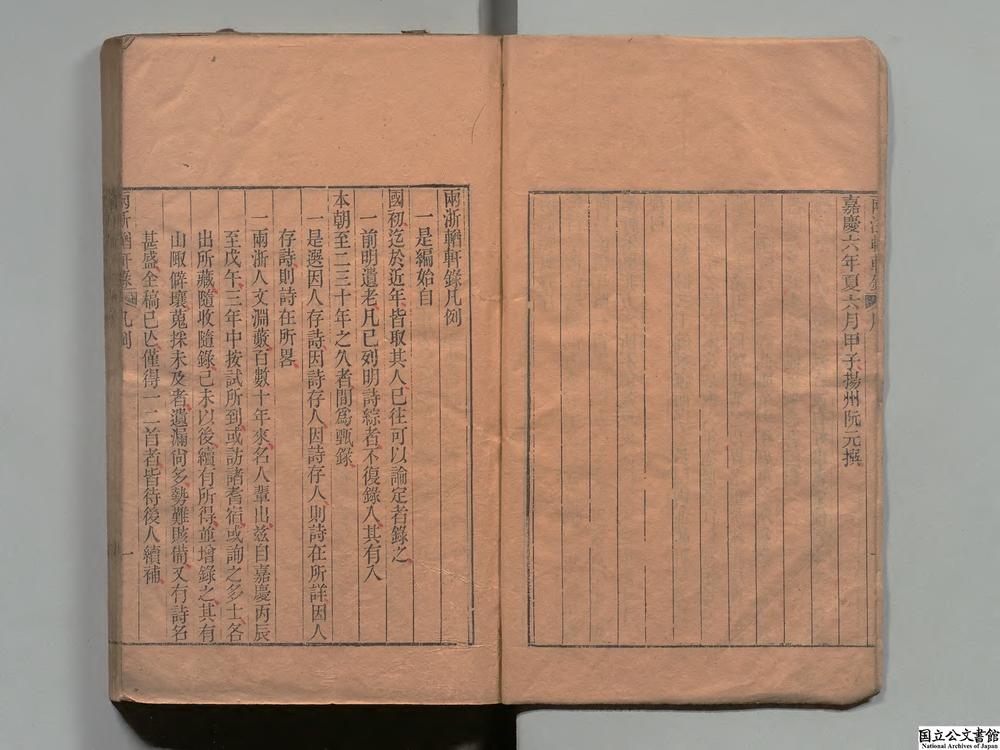 嘉慶六年夏六月甲子揚州阮元撰
兩浙輶軒錄凡例
一是編始自
國初迄於近年皆取其人已往可以論定者錄之
一前明遺老凡已列明詩綜者不復錄入其有入
本朝至二三十年之久者間爲甄錄
一是選因人存詩因詩存人因詩存人則詩在所詳因人
存詩則詩在所畧
一兩浙人文淵藪百數十年來名人輩出兹自嘉慶丙辰
至戊午三年中按試所到或訪諸耆宿或詢之多士各
出所藏隨收隨錄己未以後續有所得並增錄之其有
山陬僻壤蒐採未及者遺漏尙多勢難賅備又有詩名
甚盛全稿已亾僅得一二首者皆待後人續補
兩浙輶軒錄 凡例 一
国立公文書館
National Archives of Japan